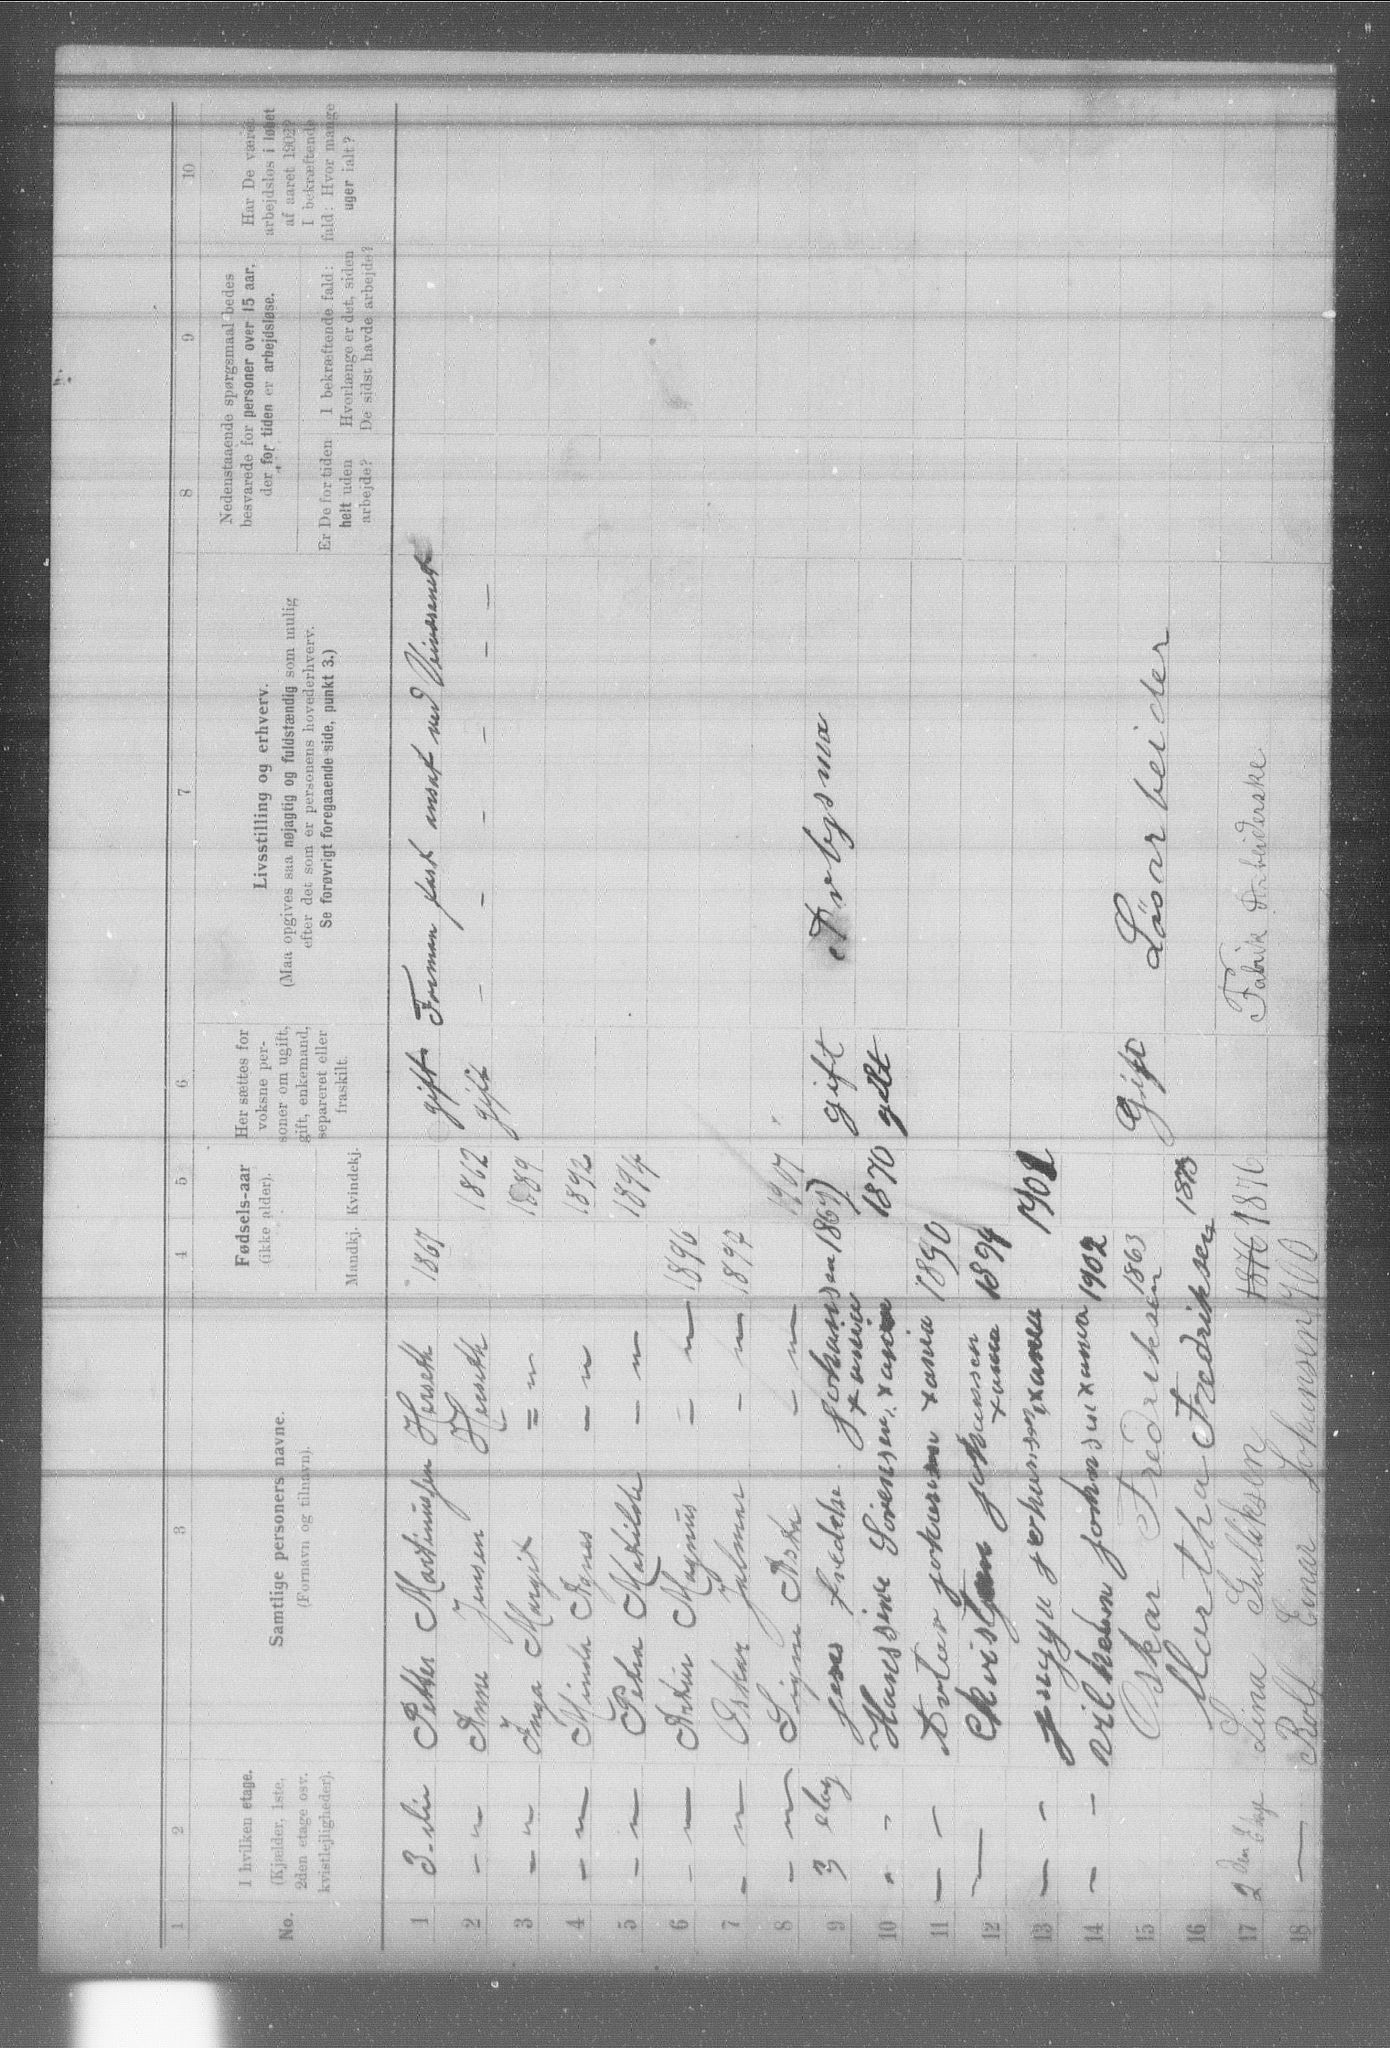 1 2 3 4 5 6 7 8 9 10
No.
I hvilken etage.
(Kjælder, 1ste,
2den etage osv.
kvistlejligheder).
Samtlige personers navne.
(Fornavn og tilnavn).
Fødsels-aar
(ikke alder).
Mandkj. Kvindekj.
Her sættes for
voksne per-
soner om ugift,
gift, enkemand,
separeret eller
fraskilt.
Livsstilling og erhverv.
(Maa opgives saa nøjagtig og fuldstændig som mulig
efter det som er personens hovederhverv.
Se forøvrigt foregaaende side, punkt 3.)
Nedenstaaende spørgsmaal bedes
besvarede for personer over 15 aar,
der for tiden er arbejdsløse.
Er De for tiden
helt uden
arbejde?
I bekræftende fald:
Hvorlænge er det, siden
De sidst havde arbejde?
Har De været
arbejdsløs i løbet
af aaret 1902?
I bekræftende
fald: Hvor mange
uger ialt?
1 Petter Martinussen 1867 gift Forman fast ansat ved
2 – " – Anna Jensen 1862 gift – – – – – –
3 – " – Inga Margit = " = 1889
4 – " – Agnes – " – 1892
5 – " – Petra Matilde – " – 1894
6 – " – Magnus – " – 1896
7 – " – Oskar Julmer – " – 1897
8 – " – Signe Asta – " – 1901
9 3 Jens Fredrik Johansen xania 1867 gift
10 " – Hansine Sørensen xania 1870 gift
11 – – xania 1890
12 — Johanssen xania 1894
13 – – xania 1901
14 – – Vilhelm xania 1902
15 Oskar Fredriksen 1863 Gift Løsarbeider
16 Martha Fredriksen 1873
17 2den Etage Lina Gulliksen 1876 1876 Fabrik Arbeiderske
18 — Rolf Einar Johansen 1900